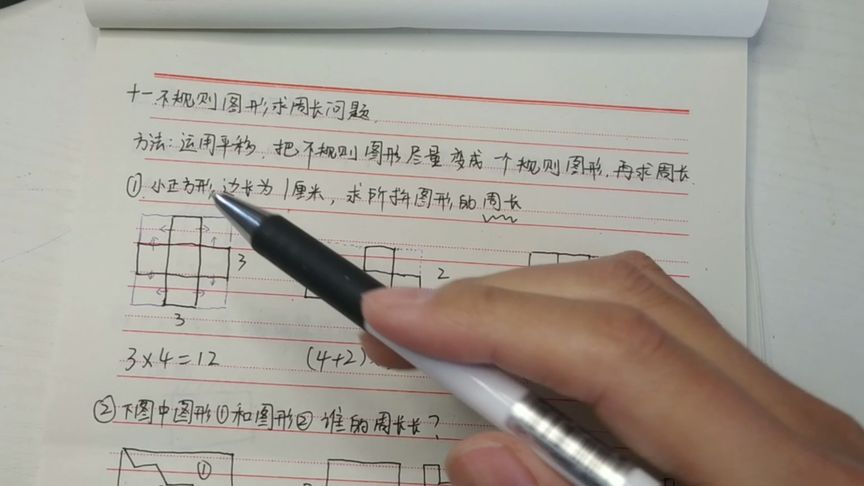 十一不规则图形求周长问题
方法：运用平移，把不规则图形尽量变成一个规则图形，再求周长.
①小正方形，边长为1厘米，求所拼图形的周长
3 2
3
3×4=12 (4+2)
②下图中图形①和图形②谁的周长长？
①